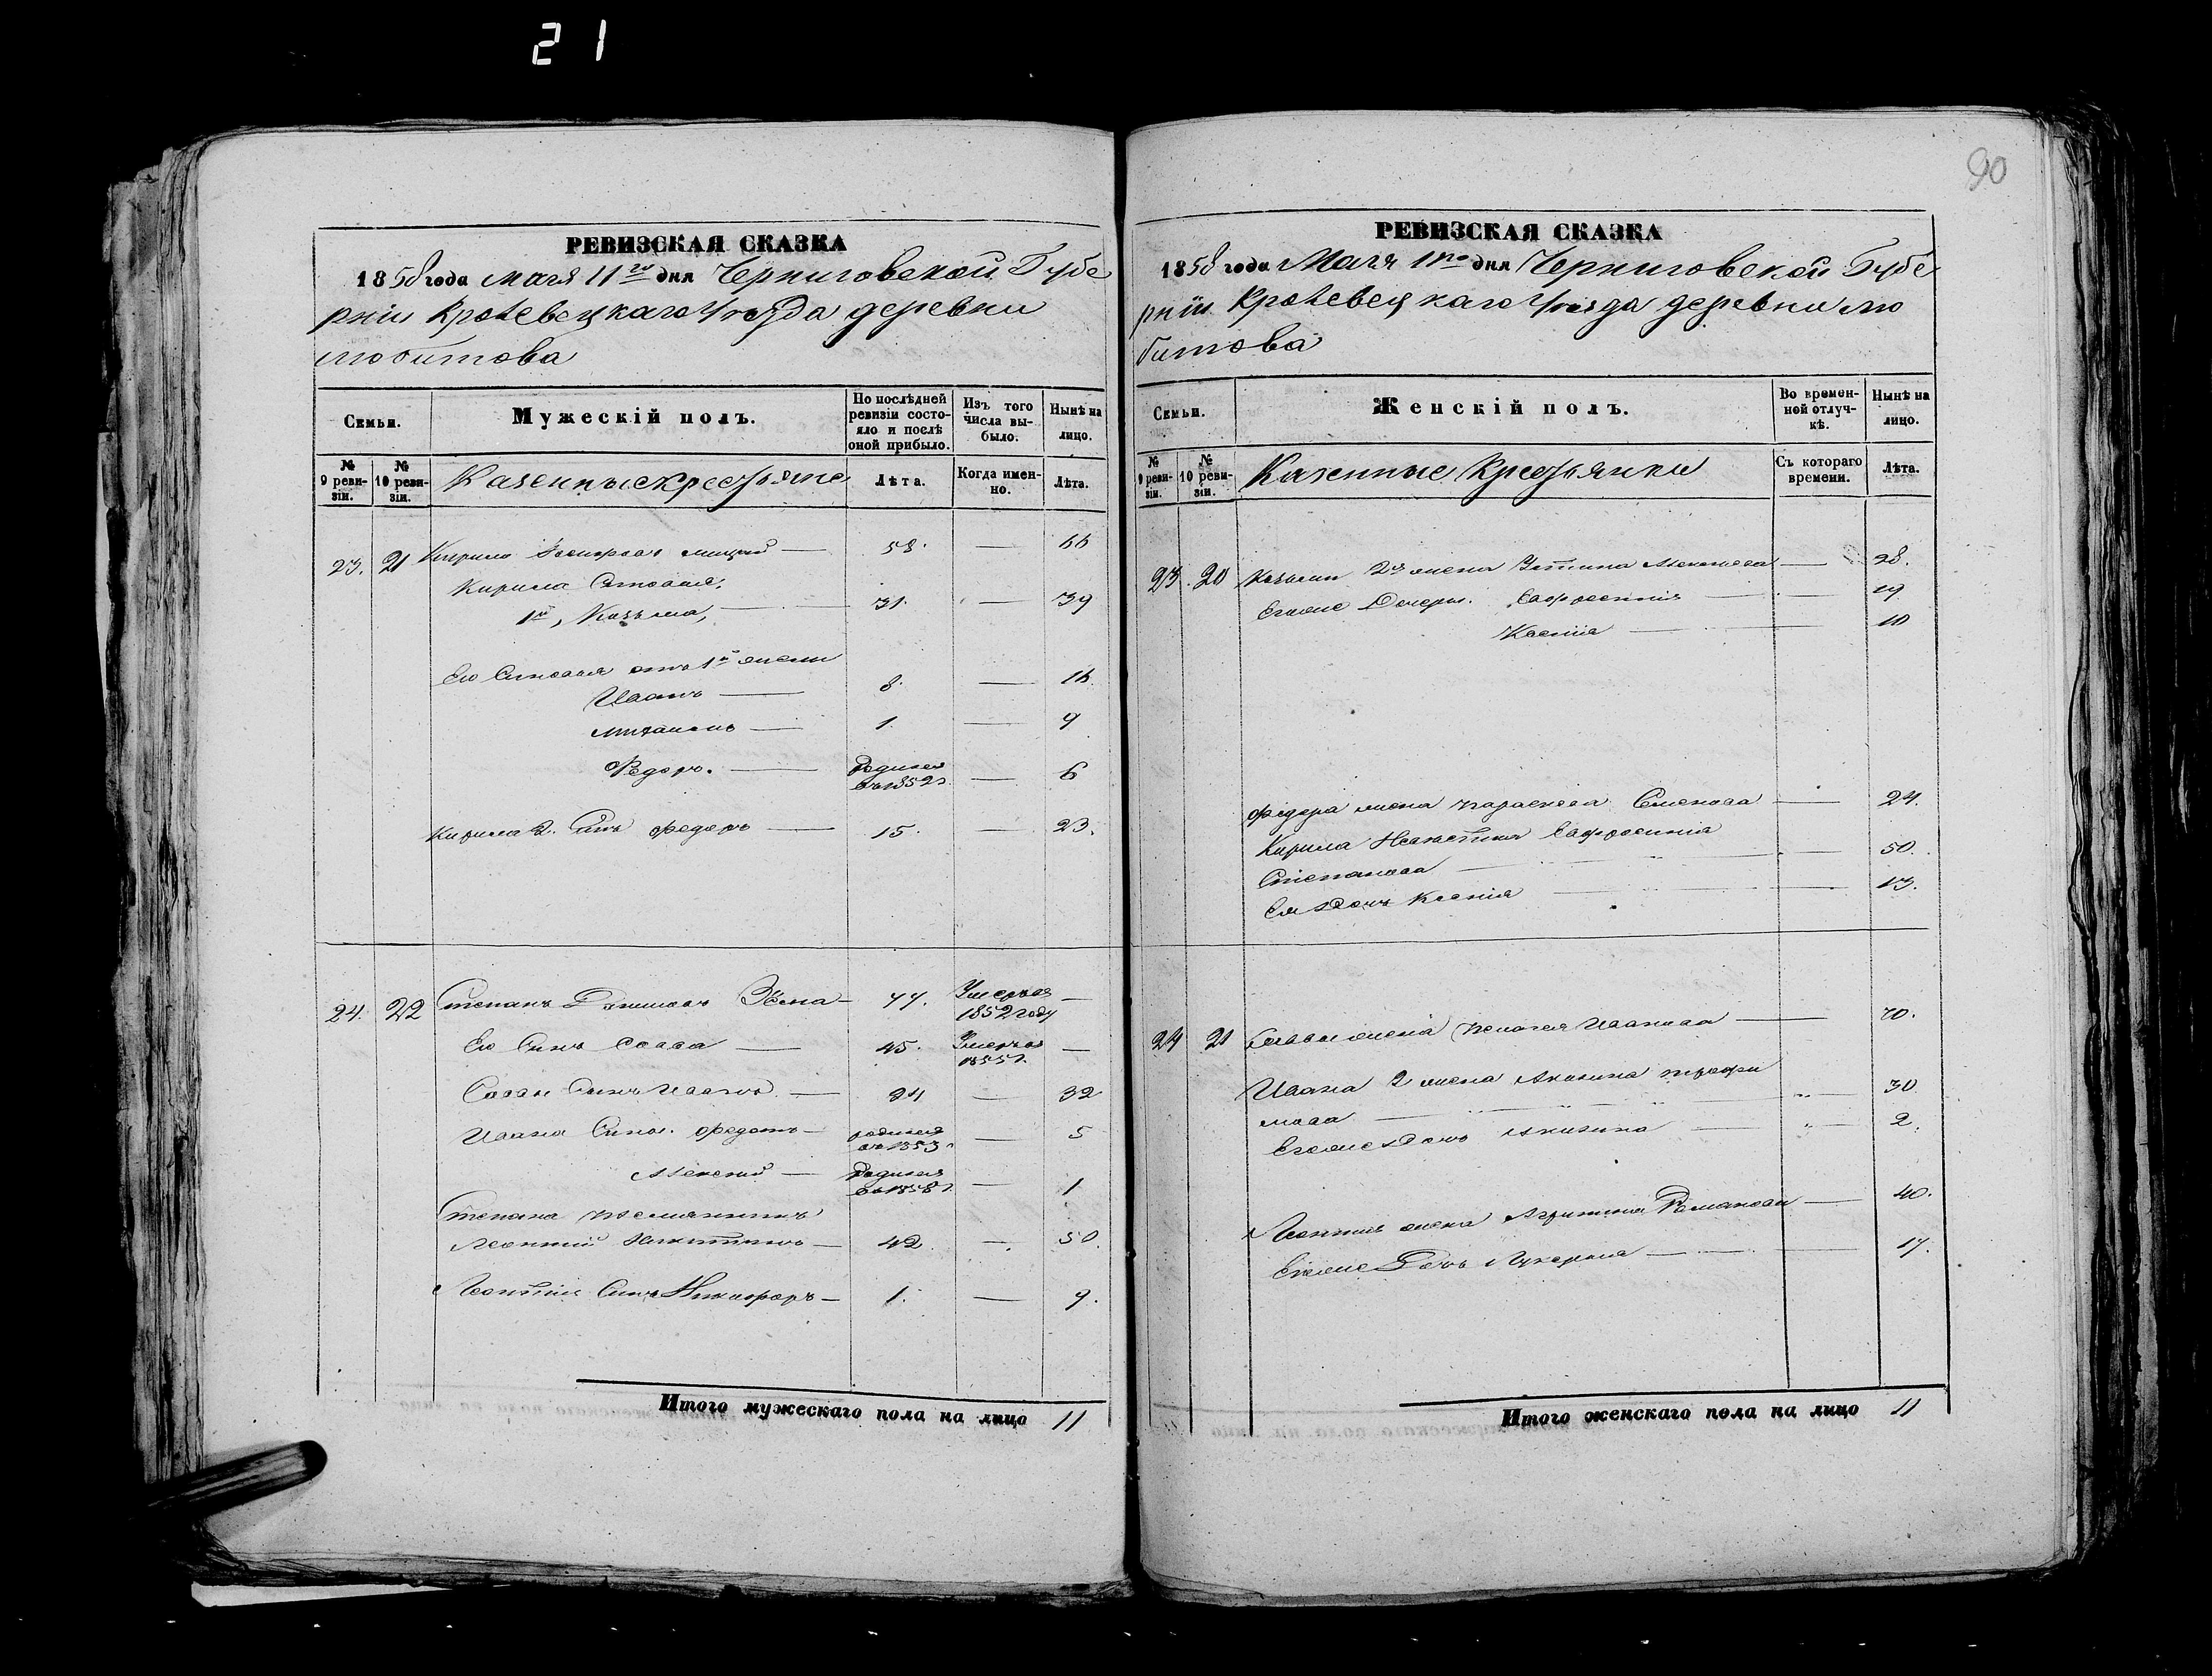 21
90
РЕВИЗСКАЯ СКАЗКА
1858 года мая 11го дня Черниговской Губе
рніи Кролевецкаго Уезда деревни
Любитова
Семьи.
Мужескій полъ.
По послѣдней ревизіи состояло и послѣ оной прибыло.
Изъ того числа выбыло.
Нынѣ на лицо.
№ 9 ревизіи.
№ 10 ревизіи.
Казенные крестьяне
Лѣта.
Когда именно.
Лѣта.
23. 21 Кирило — 58. — 66
Кирила Сыновья,
1й, Козьма, — 31. — 39
Его Сыновья отъ 1й жены
Иванъ — 8. — 16.
Михаилъ — 1. — 9
Федоръ. — Родился въ 1852г. — 6
Кирила 2. Сынъ Федоръ — 15. — 23.
24. 22 Степанъ — 77. Умеръ въ 1852 году —
Его Сынъ Савва — 45. Умеръ въ 1855г. —
Саввы Сынъ Иванъ. — 24 — 32
Ивана Сыны. Федотъ — родился въ 1853г — 5
Алексей — Родился въ 1858г. — 1
Степана племянникъ
Леонтий Никитинъ — 42. — 50.
Леонтія Сынъ Никифоръ — 1. — 9.
Итого мужескаго пола на лицо 11
РЕВИЗСКАЯ СКАЗКА
1858 года Мая 11го дня Черниговской Губе
рніи Кролевецкаго Уезда деревни Лю
битова
Семьи.
Женскій полъ.
Во временной отлучкѣ.
Нынѣ на лицо.
№ 9 ревизіи.
№ 10 ревизіи.
Казенные Крестьянки
Съ котораго времени.
Лѣта.
23. 20 Козьмы 2я жена Устина Алексеева — 28.
Его же Дочери. Евфросинія — 19
Ксенія — 10
Федора жена Параскева Семенова — 24.
Кирила Невестка Евфросинія
Степанова — 50.
Ея Дочь Ксенія — 13.
24 21 Саввы жена Пелагея Иванова — 70.
Ивана 2 жена Акилина Трофи
мова — 30
Его же Дочь Акилина — 2.
Леонтія жена Агрипина Романова — 40.
Его же Дочь Лукерья — 17.
Итого женскаго пола на лицо 11